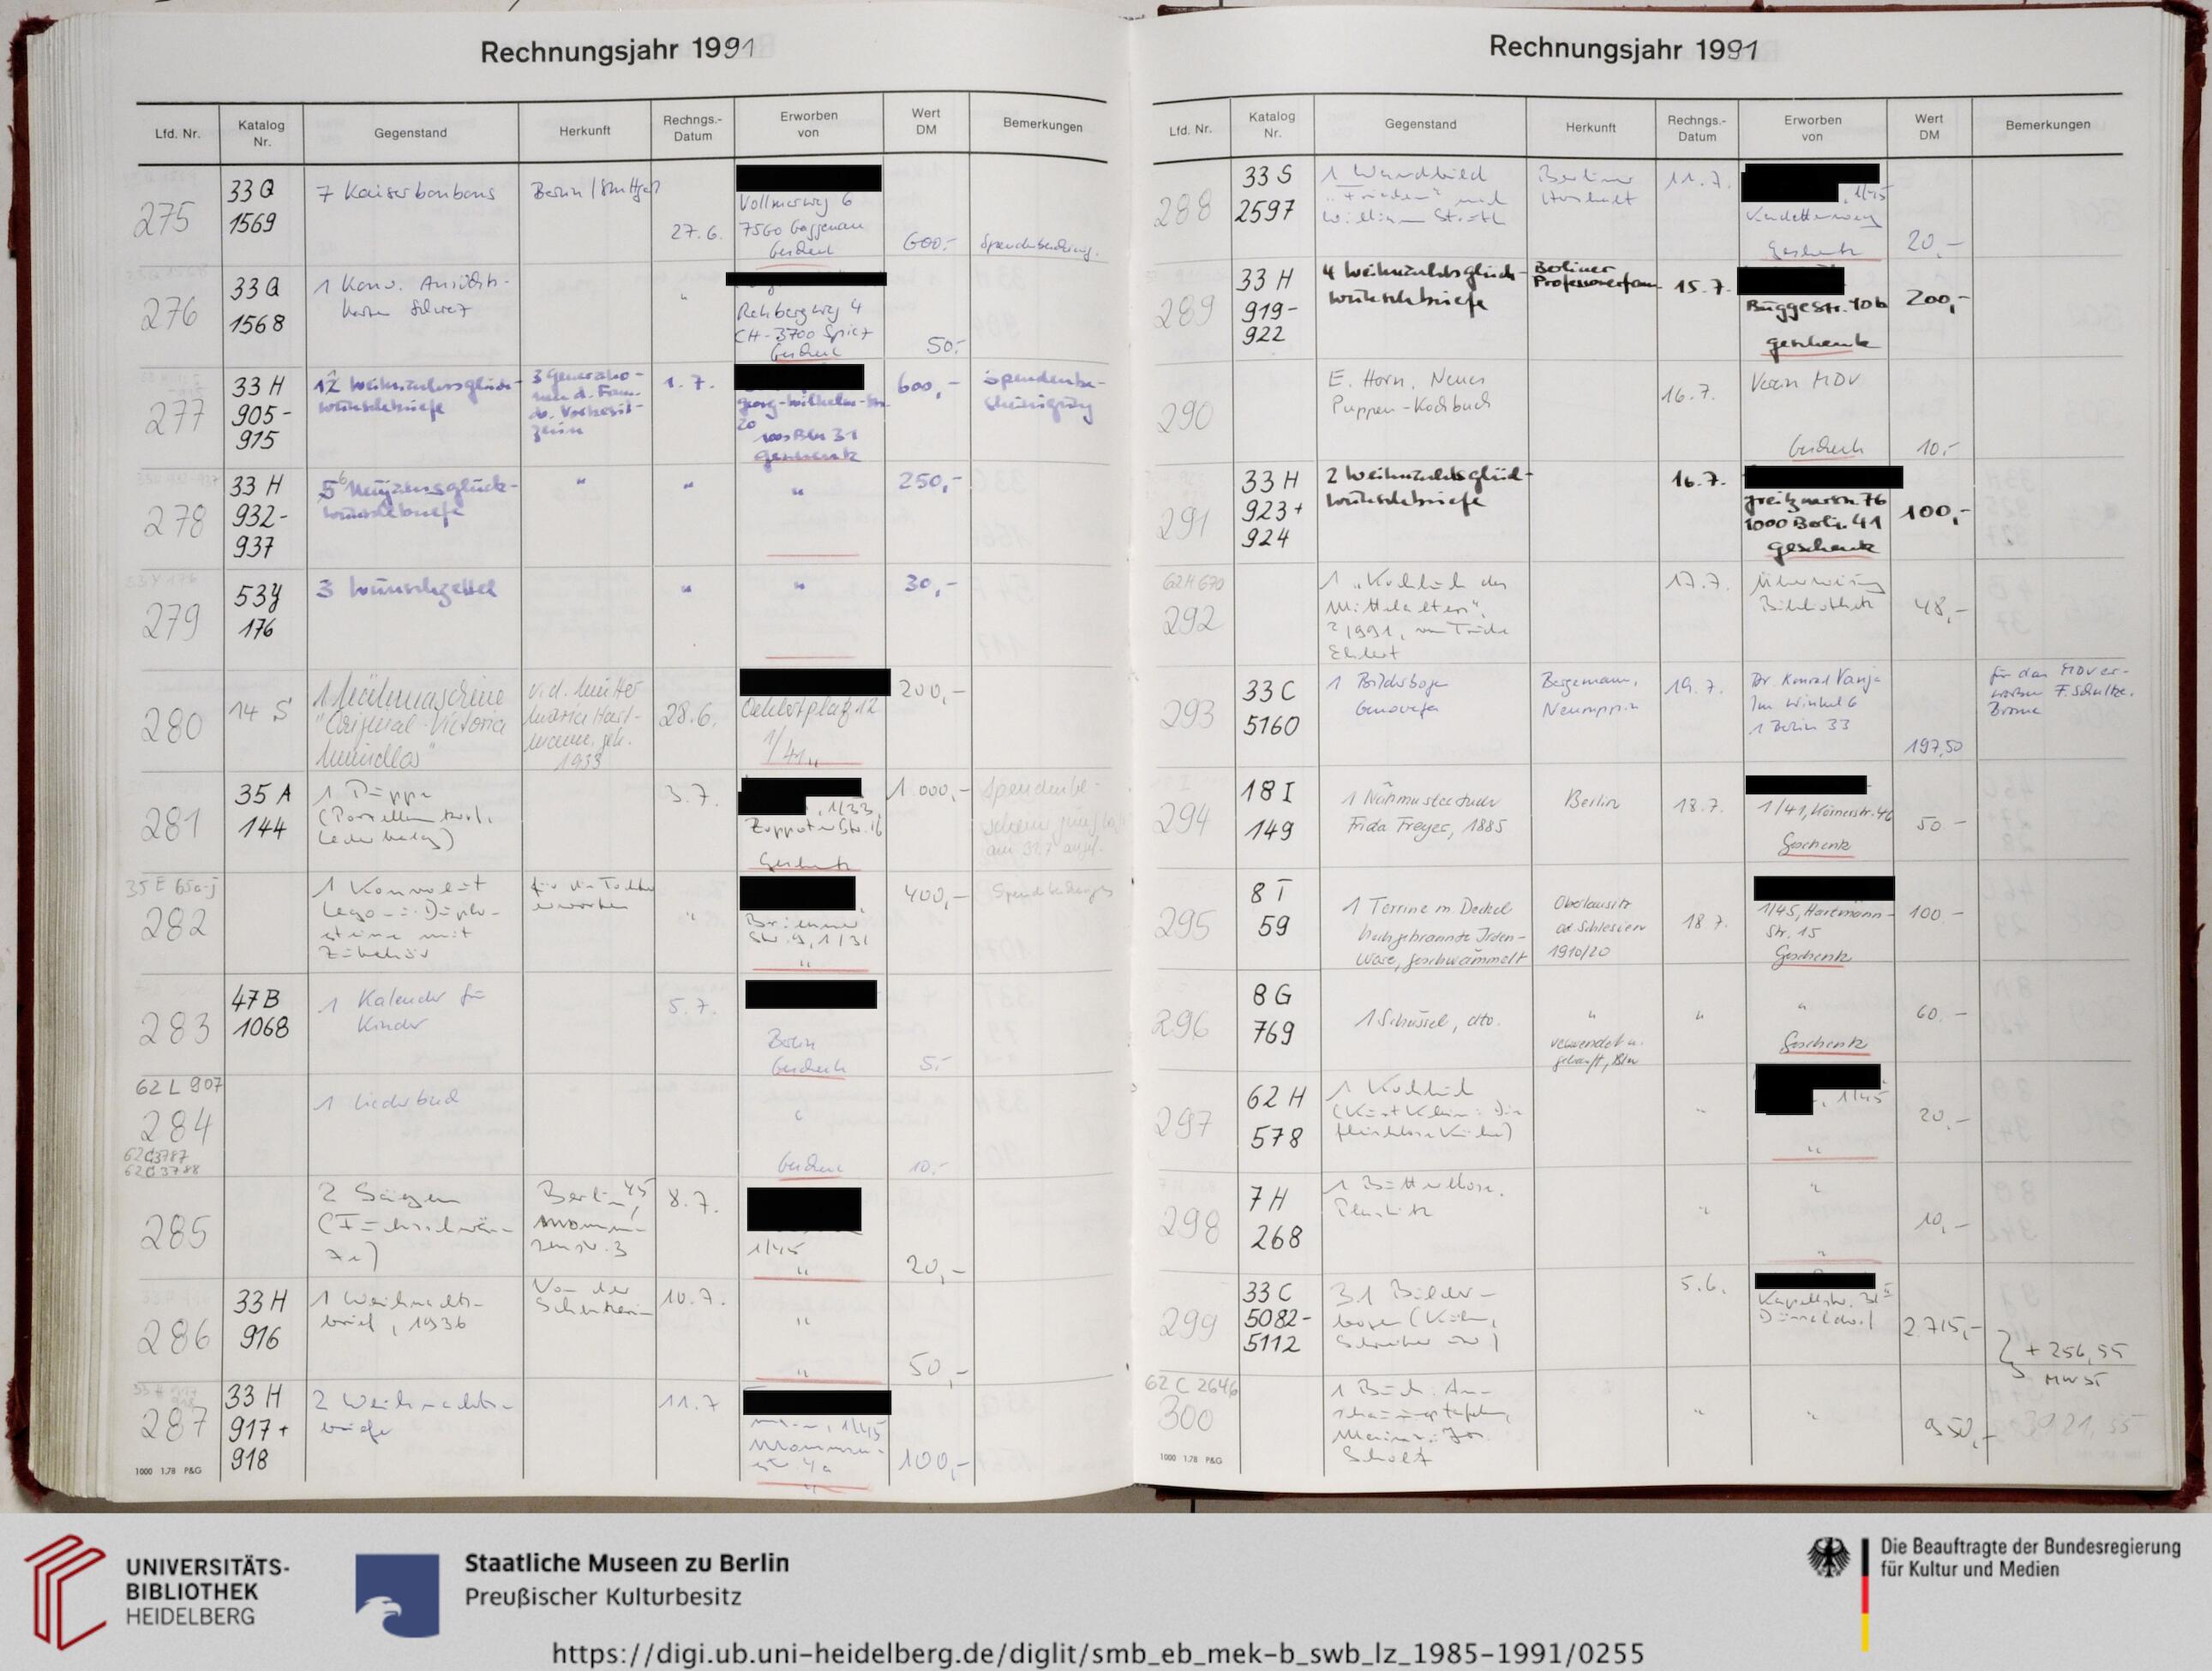 Rechnungsjahr 1991
Lfd. Nr.
Katalog
Nr.
Gegenstand
Herkunft
Rechngs.-
Datum
Erworben
von
Wert
DM
Bemerkungen
275
33 Q
1569
7 Kaiserbonbons
Berlin
27.6.
Vollmersweg 6
7560 Gaggenau
Geschenk
600.-
276
33 Q
1568
1 Konv. Ansichts-
karten Schweiz
"
Rebbergweg 4
CH-3700 Spiez
Geschenk
50.-
277
33 H
905-
915
12 Weihnachtsglück-
wünschbriefe
3 Generatio-
nen d. Fam.
1.7.
Georg-Wilhelm-Str.
20
1000 Bln 31
Geschenk
600,-
Spendenbe-
scheinigung
278
33 H
932-
937
5 6 Neujahrsglück-
wünschbriefe
"
"
"
250,-
279
53 Y
176
3 Wunschzettel
"
"
30,-
280
14 S
1 Nähmaschine
"Original-Victoria
Mundlos"
v. d. Mutter
Maria Hart-
mann, geb.
1933
28.6.
12
1/41
200,-
281
35 A
144
1 Puppe
(Porzellankopf,
Lederbalg)
3.7.
, 1/33,
Zoppoter Str. 16
Geschenk
1.000,-
Spendenbe-
282
35 E 65a-j
1 Konvolut
Lego- u. Duplo-
steine mit
Zubehör
für die Tochter
erworben
"
Str. 9, 1/31
"
400,-
283
47 B
1068
1 Kalender für
Kinder
5.7.
Berlin
Geschenk
5.-
62 L 907
284
62C3787
62C3788
1 Liederbuch
"
Geschenk
10.-
285
2 Sägen
(Fuchsschwän-
ze)
Berlin 45,
Mommsen-
senstr. 3
8.7.
1/45
"
20,-
286
33 H
916
1 Weihnachts-
brief, 1936
Von der
Schenkerin
10.7.
"
"
50,-
287
33 H
917+
918
2 Weihnachts-
briefe
11.7
, 1/45
Mommsen-
str. 4a
"
100,-
1000 1.78 P&G
Rechnungsjahr 1991
Lfd. Nr.
Katalog
Nr.
Gegenstand
Herkunft
Rechngs.-
Datum
Erworben
von
Wert
DM
Bemerkungen
288
33 S
2597
1 Wandbild
"Frieden" nach
William Strutt
Berliner
Haushalt
11.7.
, 1/45
Geschenk
20,-
289
33 H
919-
922
4 Weihnachtsglück-
wünschbriefe
Berliner
Professorenfam.
15.7.
Büggestr. 10b
Geschenk
200,-
290
E. Horn, Neues
Puppen-Kochbuch
16.7.
Verein MDV
Geschenk
10.-
291
33 H
923+
924
2 Weihnachtsglück-
wünschbriefe
16.7.
76
1000 Berlin 41
Geschenk
100,-
62H 670
292
1 "Kochbuch des
Mittelalters",
²1991, von Trude
Ehlert
17.7.
Überweisung
Bibliothek
48,-
293
33 C
5160
1 Bilderbogen
Genovefa
Bergemann,
Neuruppin
19.7.
Dr Konrad Vanja
Im Winkel 6
1 Berlin 33
197,50
für das MDV er-
worben F. Schultze,
Broma
294
18 I
149
1 Nähmustertuch
Frida Freyer, 1885
Berlin
18.7.
1/41, Körnerstr. 46
Geschenk
50.-
295
8 T
59
1 Terrine m. Deckel
hochgebrannte Irden-
ware, geschwämmelt
Oberlausitz
od. Schlesien
1910/20
18.7.
1/45, Hartmann-
Str. 15
Geschenk
100.-
296
8 G
769
1 Schüssel, dto.
"
verwendet u.
gekauft, Bln
"
"
Geschenk
60.-
297
62 H
578
1 Kochbuch
(Kurt Klein: Die
fleischlose Küche)
"
, 1/45
"
20,-
298
7 H
268
1 Butterdose,
Plastik
"
"
"
10,-
299
33 C
5082-
5112
31 Bilder-
bogen (Kühn,
Schreiber usw)
5.6.
Kapellstr.
Düsseldorf
2.715,-
+ 256,55
MWST
62 C 2646
300
1 Buch. An-
schauungstafeln,
Mainz: Jos.
Scholz
"
"
950,-
3921,55
1000 1.78 P&G
UNIVERSITÄTS-
BIBLIOTHEK
HEIDELBERG
Staatliche Museen zu Berlin
Preußischer Kulturbesitz
Die Beauftragte der Bundesregierung
für Kultur und Medien
https://digi.ub.uni-heidelberg.de/diglit/smb_eb_mek-b_swb_lz_1985-1991/0255